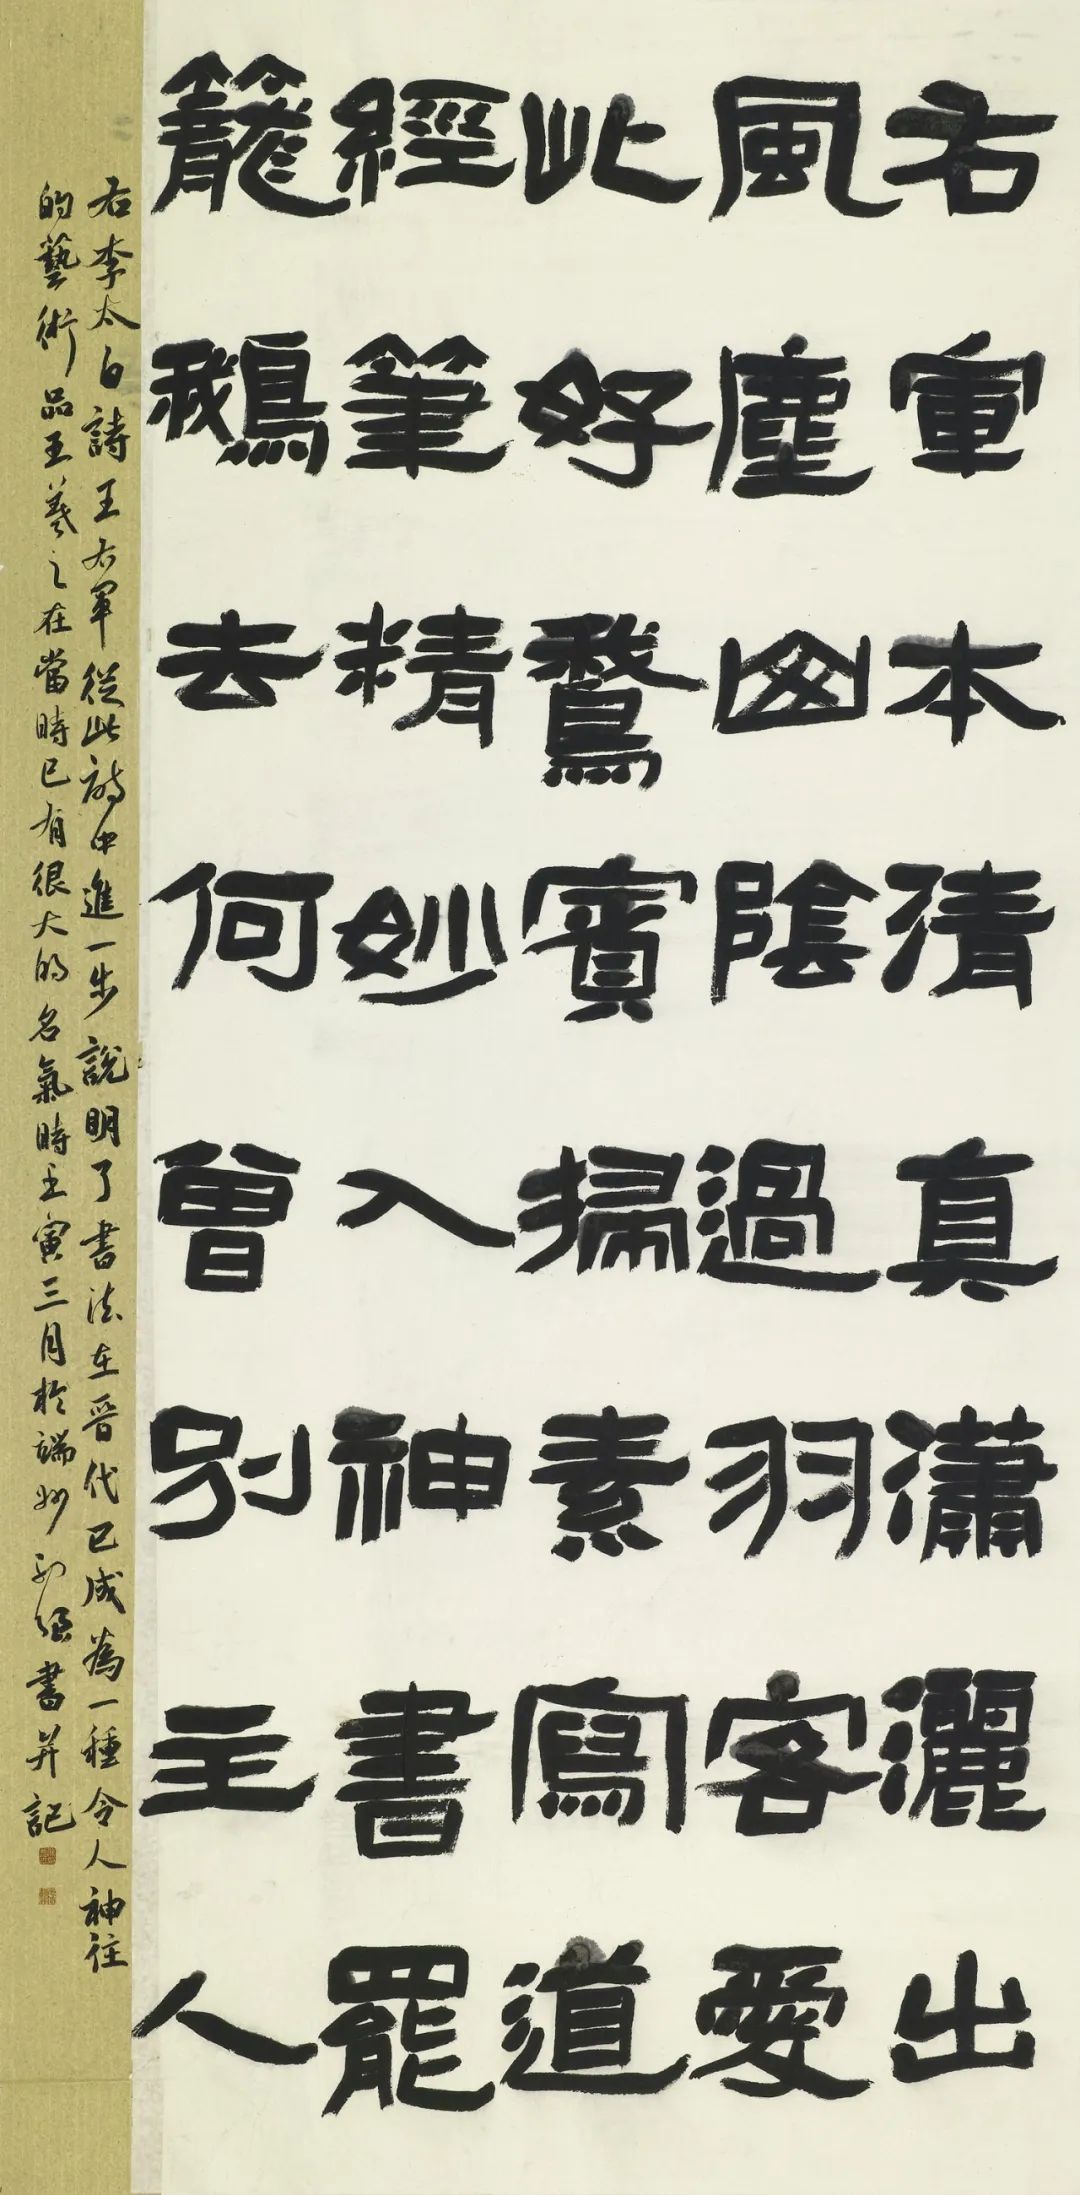 右軍本清真瀟灑出
風塵山陰過羽客愛
此好鵞賓掃素寫道
經筆精妙入神書罷
籠鵝去何曾別主人
右李太白詩王右軍從此詩中進一步說明了書法在晉代已成為一種令人神往
的藝術品王羲之在當時已有很大的名氣時壬寅三月於端書并記